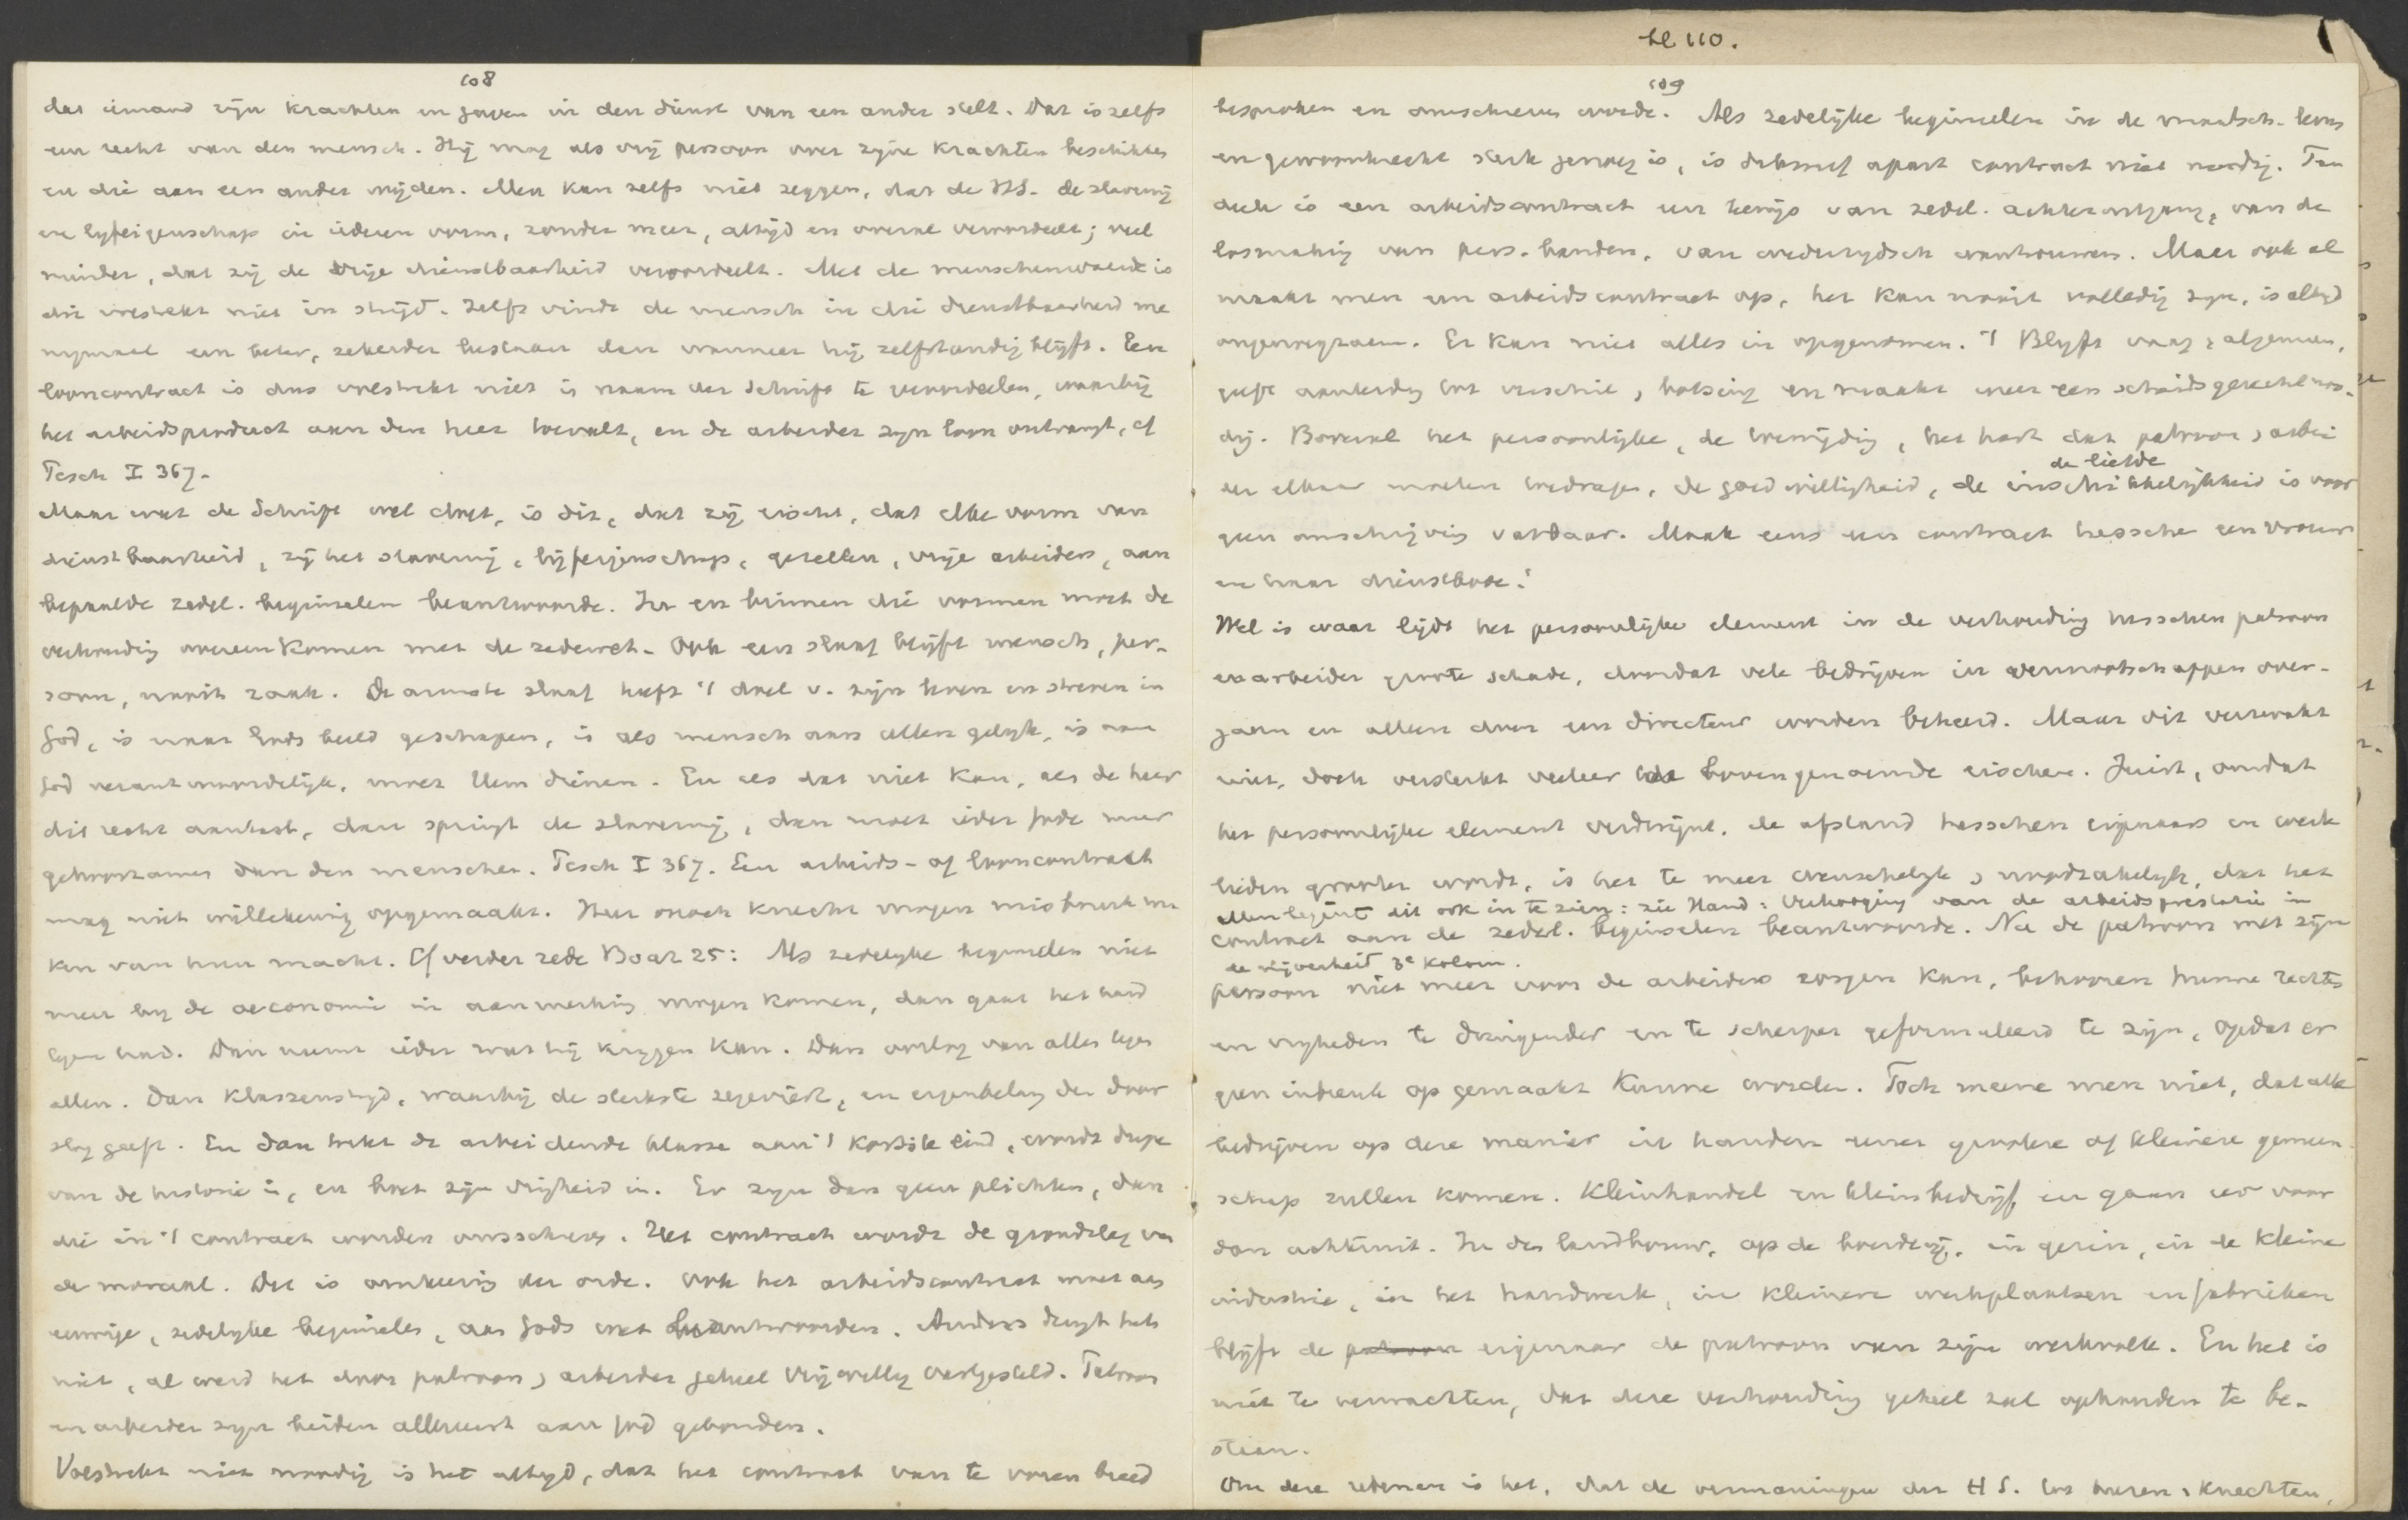 108
dat iemand zijn krachten en gaven in den dienst van een ander stelt. Dat is zelfs
een recht van den mensch. Hij mag als vrij persoon over zijne krachten beschikken
en die aan een ander wijden. Men kan zelfs niet zeggen, dat de HS. de slavernij
en lijfeigenschap in iederen vorm, zonder meer, altijd en overal veroordeelt; veel
minder, dat zij de vrije dienstbaarheid veroordeelt. Met de menschenwaarde is
die volstrekt niet in strijd. Zelfs vindt de mensch in die dienstbaarheid me
nigmaal een beter, zekerder bestaan dan wanneer hij zelfstandig blijft. Een
looncontract is dus volstrekt niet in naam der Schrift te veroordeelen, waarbij
het arbeidsproduct aan den heer toevalt, en de arbeider zijn loon ontvangt, cf
Pesch I 367.
Maar wat de Schrift wel doet, is dit, dat zij eischt, dat elke vorm van
dienstbaarheid, zij het slavernij, lijfeigenschap, gezellen, vrije arbeiders, aan
bepaalde zedel. beginselen beantwoorde. In en binnen die vormen moet de
verhouding overeenkomen met de zedewet. Ook een slaaf blijft mensch, per-
soon, nooit zaak. De armste slaaf heeft 't doel v. zijn leven en streven in
God, is naar Gods beeld geschapen, is als mensch aan allen gelijk, is aan
God verantwoordelijk, moet Hem dienen. En als dat niet kan, als de heer
dit recht aantast, dan springt de slavernij, dan moet ieder Gode meer
gehoorzamen dan den menschen. Pesch I 367. Een arbeids- of looncontract
mag niet willekeurig opgemaakt. Heer noch knecht mogen misbruik ma
ken van hun macht. Cf verder rede Boaz 25: Als zedelijke beginselen niet
meer bij de oeconomie in aanmerking mogen komen, dan gaat het hard
tegen hard. Dan neemt ieder wat hij krijgen kan. Dan oorlog van allen tegen
allen. Dan klassenstrijd, waarbij de sterkste zegeviert, en eigenbelang den door
slag geeft. En dan trekt de arbeidende klasse aan 't kortste eind, wordt dupe
van de historie, en boet zijn vrijheid in. Er zijn dan geen plichten, dan
die in 't contract worden omschreven. Het contract wordt de grondslag van
de moraal. Dit is omkeering der orde. Ook het arbeidscontract moet aan
eeuwige, zedelijke beginselen, aan Gods wet beantwoorden. Anders deugt het
niet, al werd het door patroon & arbeider geheel vrijwillig vastgesteld. Patroon
en arbeider zijn beiden allereerst aan God gebonden.
Volstrekt niet noodig is het altijd, dat het contract van te voren breed
bl 110.
109
besproken en omschreven worde. Als zedelijke beginselen in de maatsch. leven
en gewoonterecht sterk genoeg is, is dikwijls apart contract niet noodig. Ten
deele is een arbeidscontract een bewijs van zedel. achteruitgang, van de
losmaking van pers. banden, van wederzijdsch wantrouwen. Maar ook al
maakt men een arbeidscontract op, het kan nooit volledig zijn, is altijd
ongenoegzaam. Er kan niet alles in opgenomen. 't Blijft vaag & algemeen,
geeft aanleiding tot verschil, botsing en maakt weer een scheidsgerecht noo-
dig. Bovenal het persoonlijke, de toewijding, het hart dat patroon & arbei
der elkaar moeten toedragen, de goedwilligheid, de inschikkelijkheid is voor
de liefde
geen omschrijving vatbaar. Maak eens een contract tusschen een vrouw
en haar dienstbode!
Wel is waar lijdt het persoonlijke element in de verhouding tusschen patroon
en arbeider groote schade, doordat vele bedrijven in vennootschappen over-
gaan en alleen door een directeur worden beheerd. Maar dit verzwakt
niet, doch versterkt veeleer de bovengenoemde eischen. Juist, omdat
het persoonlijke element verdwijnt, de afstand tusschen eigenaars en werk
lieden grooter wordt, is het te meer wenschelijk & noodzakelijk, dat het
Men begint dit ook in te zien: zie Hand: Verhooging van de arbeidsprestatie in
contract aan de zedel. beginselen beantwoorde. Nu de patroon met zijn
de nijverheid 3e kolom.
persoon niet meer voor de arbeiders zorgen kan, behooren hunne rechten
en vrijheden te dringender en te scherper geformuleerd te zijn, opdat er
geen inbreuk op gemaakt kunne worden. Toch meene men niet, dat alle
bedrijven op deze manier in handen eener grootere of kleinere gemeen
schap zullen komen. Kleinhandel en kleinbedrijf, en gaan eer voor
dan achteruit. In den landbouw, op de boerderij, in gezin, in de kleine
industrie, in het handwerk, in kleinere werkplaatsen en fabrieken
blijft de patroon eigenaar de patroon van zijn werkvolk. En het is
niet te verwachten, dat deze verhouding geheel zal ophouden te be-
staan.
Om deze redenen is het, dat de vermaningen der HS. tot heeren & knechten,